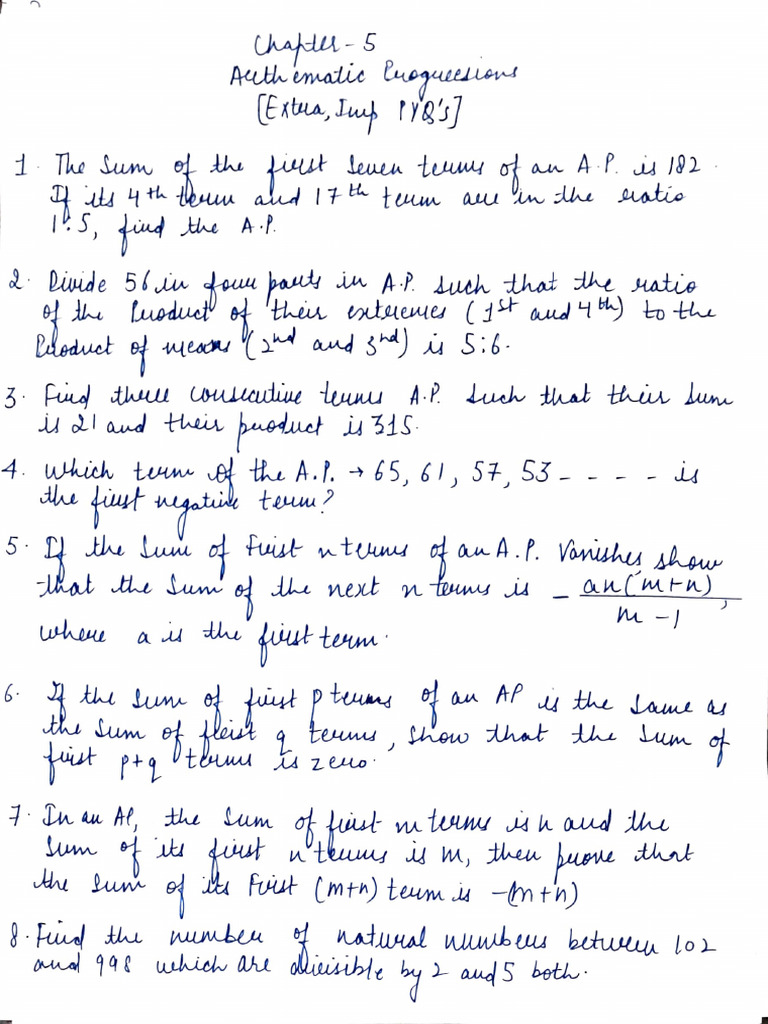 Chapter - 5
Arithematic Progressions
[Extra, Imp PYQ's]
1. The Sum of the first Seven terms of an A.P. is 182.
If its 4th term and 17th term are in the ratio
1:5, find the A.P.
2. Divide 56 in four parts in A.P. such that the ratio
of the Product of their extremes (1st and 4th) to the
Product of means (2nd and 3nd) is 5:6.
3. Find three consecutive terms A.P. Such that their Sum
is 21 and their product is 315.
4. Which term of the A.P. → 65, 61, 57, 53 - - - - is
the first negative term?
5. If the Sum of First n terms of an A.P. Vanishes, show
that the Sum of the next n terms is - an(m+n) / m-1,
where a is the first term.
6. If the sum of first p terms of an AP is the same as
the sum of first q terms, show that the sum of
first p+q terms is zero.
7. In an AP, the sum of first m terms is n and the
sum of its first n terms is m, then prove that
the sum of its First (m+n) term is -(m+n)
8. Find the number of natural numbers between 102
and 998 which are divisible by 2 and 5 both.